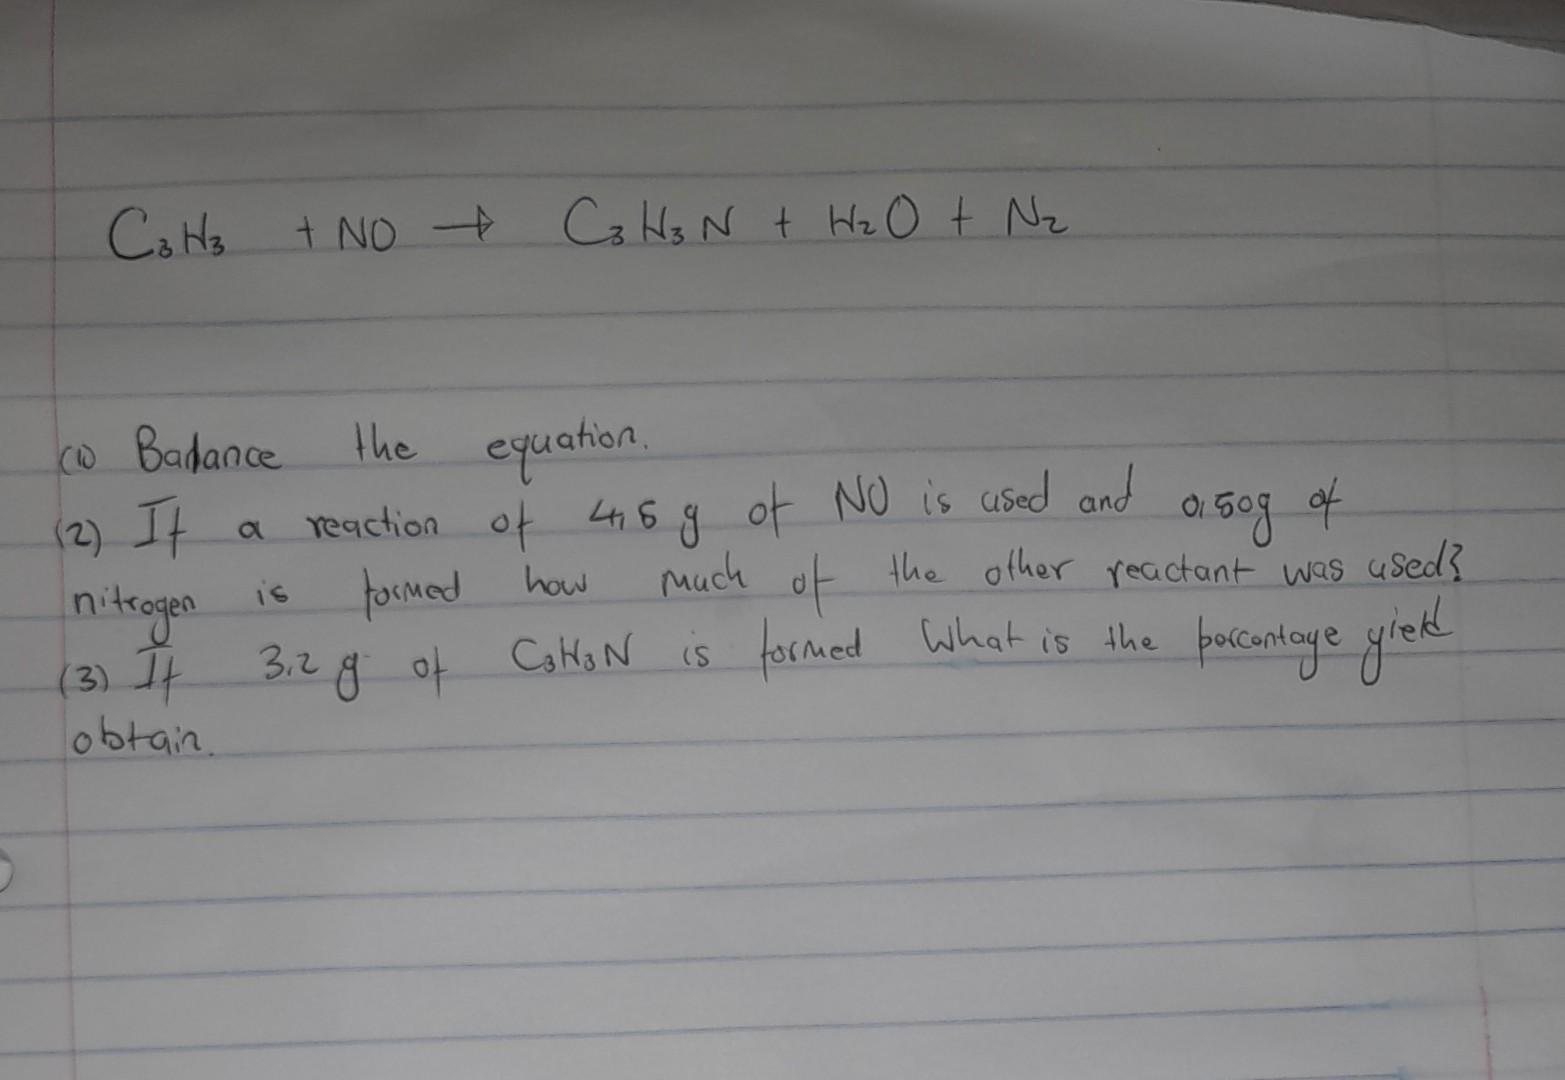 C₃H₃ + NO → C₃H₃N + H₂O + N₂
(1) Badance the equation.
(2) If a reaction of 4,5 g of NO is used and 0,50g of
nitrogen is formed how much of the other reactant was used?
(3) If 3.2 g of C₃H₃N is formed What is the porcentage yield
obtain.